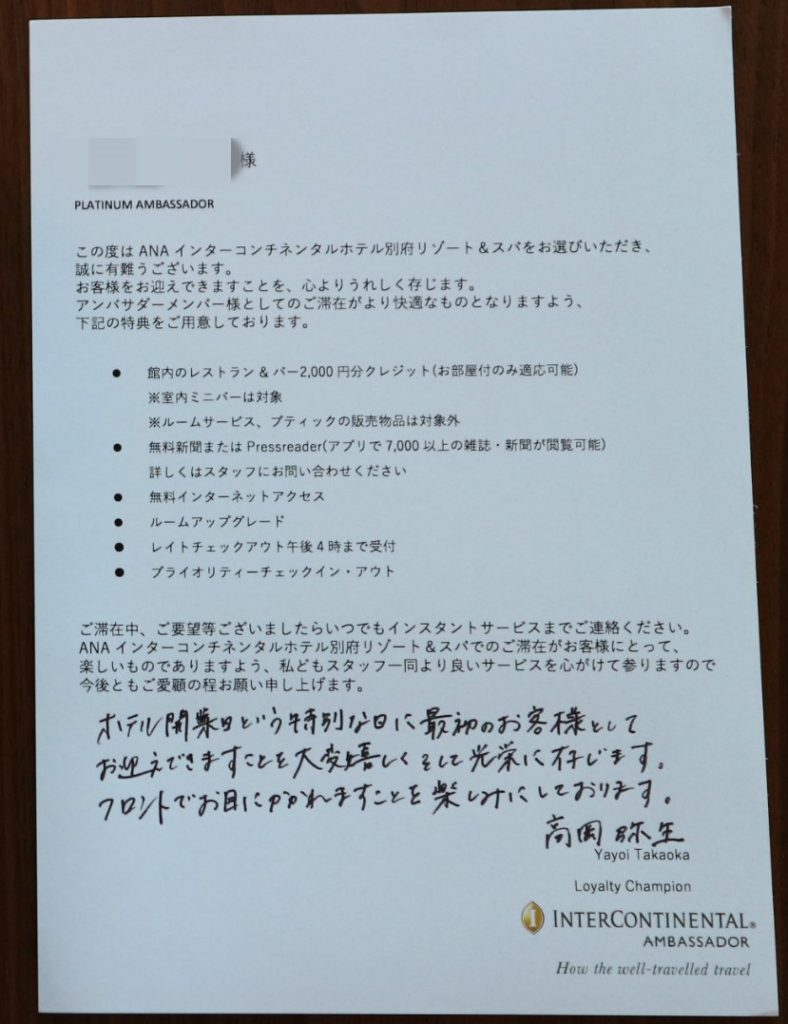 様
PLATINUM AMBASSADOR
この度は ANA インターコンチネンタルホテル別府リゾート＆スパをお選びいただき、
誠に有難うございます。
お客様をお迎えできますことを、心よりうれしく存じます。
アンバサダーメンバー様としてのご滞在がより快適なものとなりますよう、
下記の特典をご用意しております。
● 館内のレストラン & バー2,000 円分クレジット(お部屋付のみ適応可能)
※室内ミニバーは対象
※ルームサービス、ブティックの販売物品は対象外
● 無料新聞または Pressreader(アプリで 7,000 以上の雑誌・新聞が閲覧可能)
詳しくはスタッフにお問い合わせください
● 無料インターネットアクセス
● ルームアップグレード
● レイトチェックアウト午後 4 時まで受付
● プライオリティーチェックイン・アウト
ご滞在中、ご要望等ございましたらいつでもインスタントサービスまでご連絡ください。
ANA インターコンチネンタルホテル別府リゾート＆スパでのご滞在がお客様にとって、
楽しいものでありますよう、私どもスタッフ一同より良いサービスを心がけて参りますので
今後ともご愛顧の程お願い申し上げます。
ホテル開業日という特別な日に最初のお客様として
お迎えできますことを大変嬉しくそして光栄に存じます。
フロントでお目にかかれますことを楽しみにしております。
高岡 弥生
Yayoi Takaoka
Loyalty Champion
INTERCONTINENTAL®
AMBASSADOR
How the well-travelled travel